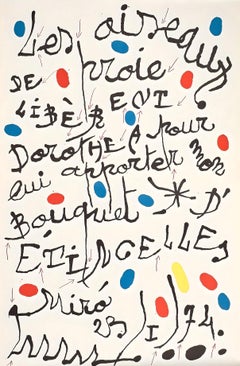 Les oiseaux
DE proie
LIBÈRENT
DOROTHEA pour
lui apporter mon
Bouquet D'
ÉTINCELLES
Miró
23 I 74.